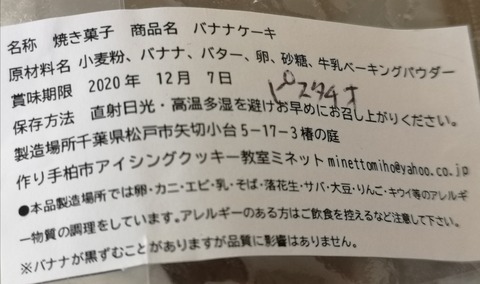 名称　焼き菓子　商品名　バナナケーキ
原材料名 小麦粉、バナナ、バター、卵、砂糖、牛乳ベーキングパウダー
賞味期限　2020年　12月　7日
ピスタチオ
保存方法　直射日光・高温多湿を避けお早めにお召し上がりください。
製造場所千葉県松戸市矢切小台5-17-3椿の庭
作り手柏市アイシングクッキー教室ミネットminettomiho@yahoo.co.jp
●本品製造場所では卵・カニ・エビ・乳・そば・落花生・サバ・大豆・りんご・キウイ等のアレルギ
ー物質の調理をしています。アレルギーのある方はご飲食を控えるなど注意して下さい。
※バナナが黒ずむことがありますが品質に影響はありません。